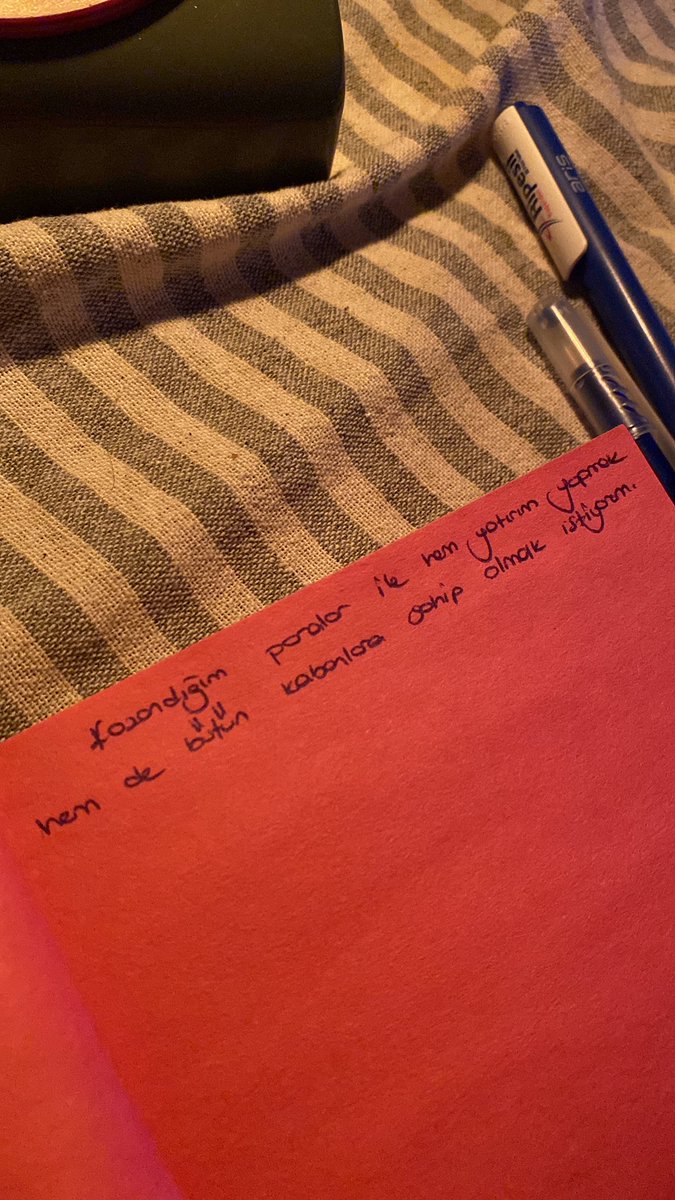 aris
nipesil
Kazandığım paralar ile hem yatırım yapmak
hem de bütün kabanlara sahip olmak istiyorum.